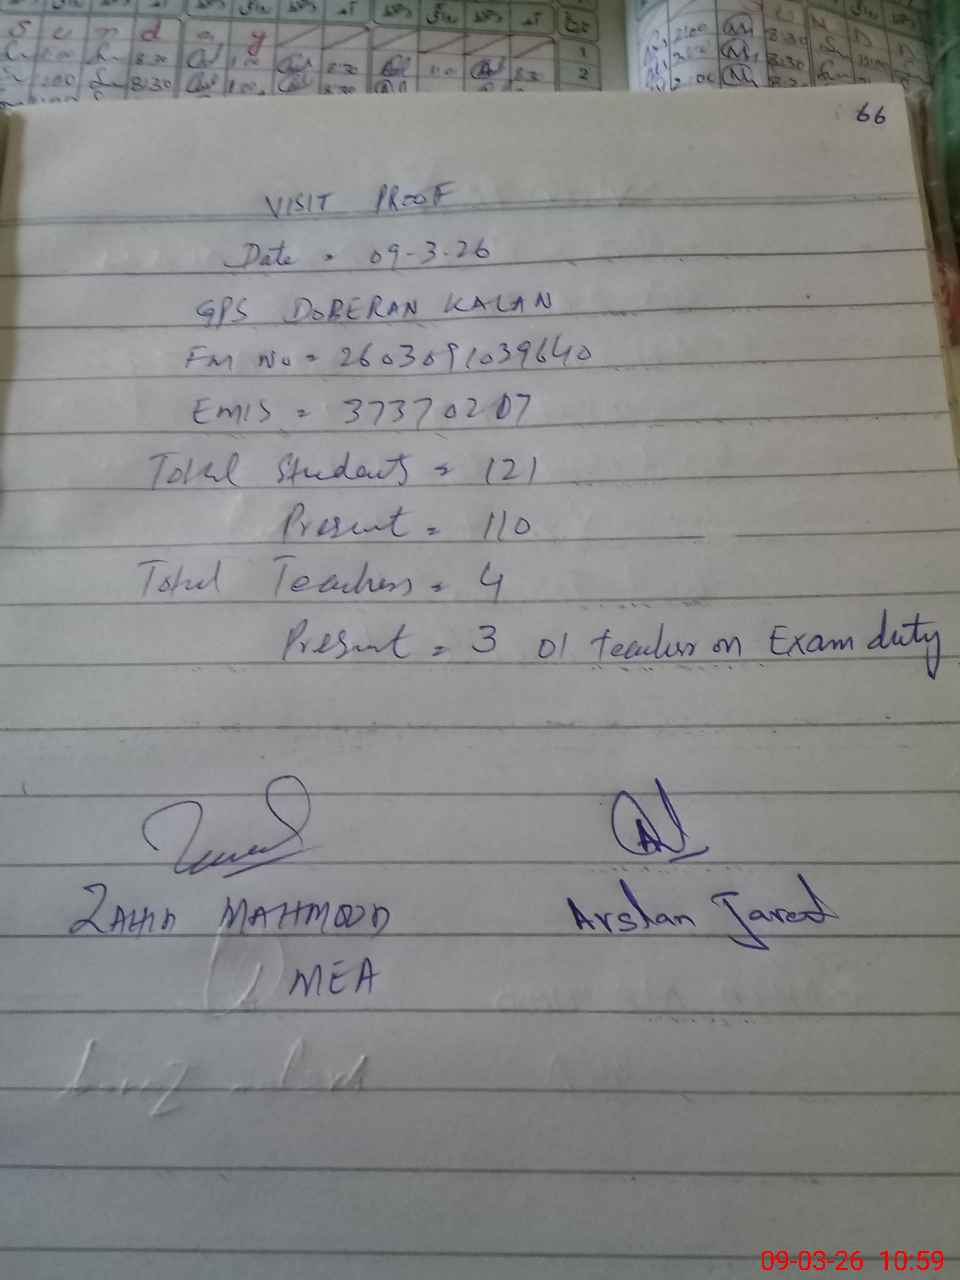 66
VISIT PROOF
Date = 09-3-26
GPS DOBERAN KALAN
FM No = 2603091039640
EMIS = 37370207
Total Students = 121
Present = 110
Total Teachers = 4
Present = 3 01 teacher on Exam duty
ZAHID MAHMOOD
Arslan Javed
MEA
09-03-26 10:59